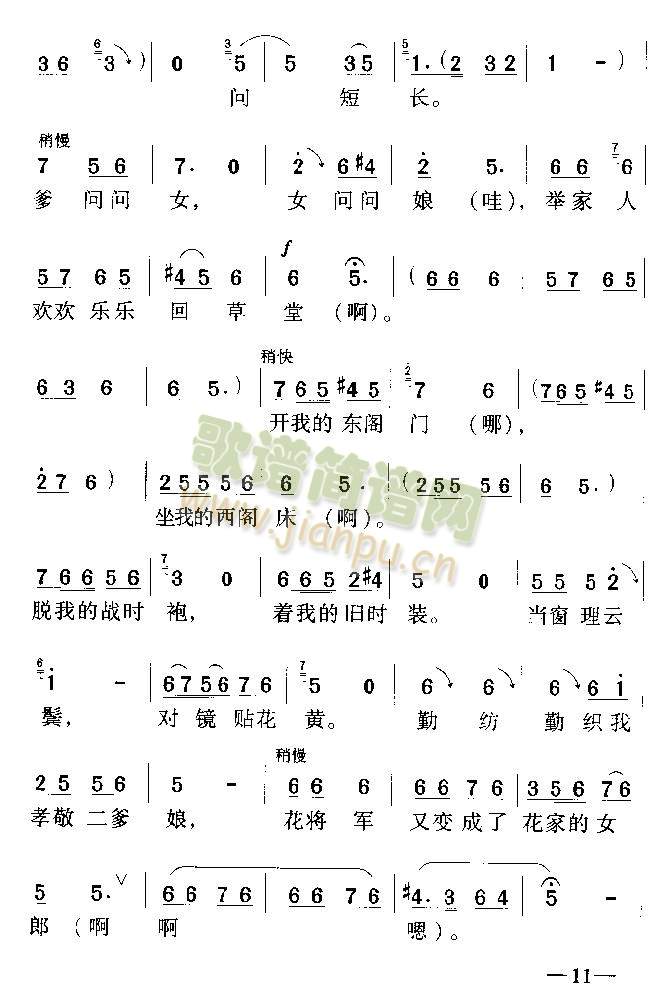 3 6 6 3) | 0 3 5 | 5 3 5 | 5 1. (2 3 2 | 1 - )
问 短 长。
稍慢
7 5 6 | 7. 0 | 2 6 #4 | 2 5. | 6 6 7 6
爹 问 问 女, 女 问 问 娘 (哇), 举 家 人
f
5 7 6 5 | #4 5 6 | 6 5. | (6 6 6 | 5 7 6 5
欢欢 乐乐 回 草 堂 (啊)。
稍快
6 3 6 | 6 5.) | 7 6 5 #4 5 | 2 7 6 | (7 6 5 #4 5
开我的 东阁 门 (哪),
2 7 6) | 2 5 5 5 5 6 | 6 5. | (2 5 5 5 6 | 6 5.)
坐我的西阁 床 (啊)。
歌谱简谱网
www.jianpu.cn
7 6 6 5 6 | 7 3 0 | 6 6 5 2 #4 | 5 0 | 5 5 5 2
脱我的战时 袍, 着我的旧时 装。 当窗 理云
6 1 - | 6 7 5 6 7 6 | 7 5 0 | 6 6 | 6 6 1
鬓, 对 镜 贴花 黄。 勤 纺 勤 织我
稍慢
2 5 5 6 | 5 - | 6 6 6 | 6 6 7 6 | 3 5 6 7 6
孝敬 二爹 娘, 花将 军 又变 成了 花家的 女
5 5. ∨ | 6 6 7 6 | 6 6 7 6 | #4. 3 6 4 | 5 -
郎 (啊 啊 嗯)。
—11—